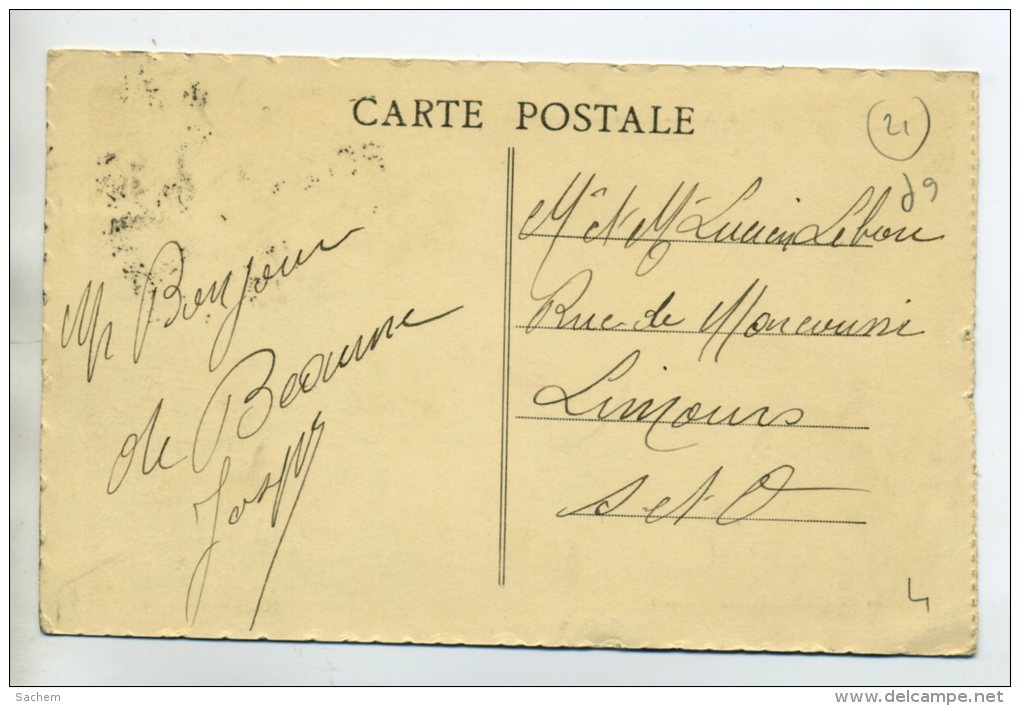 CARTE POSTALE
21
d9
Bonjour
de Beaune
Joseph
Mr et Me Lucien Lebon
Rue de Marcoussi
Limours
S et O
4
Sachem
www.delcampe.net